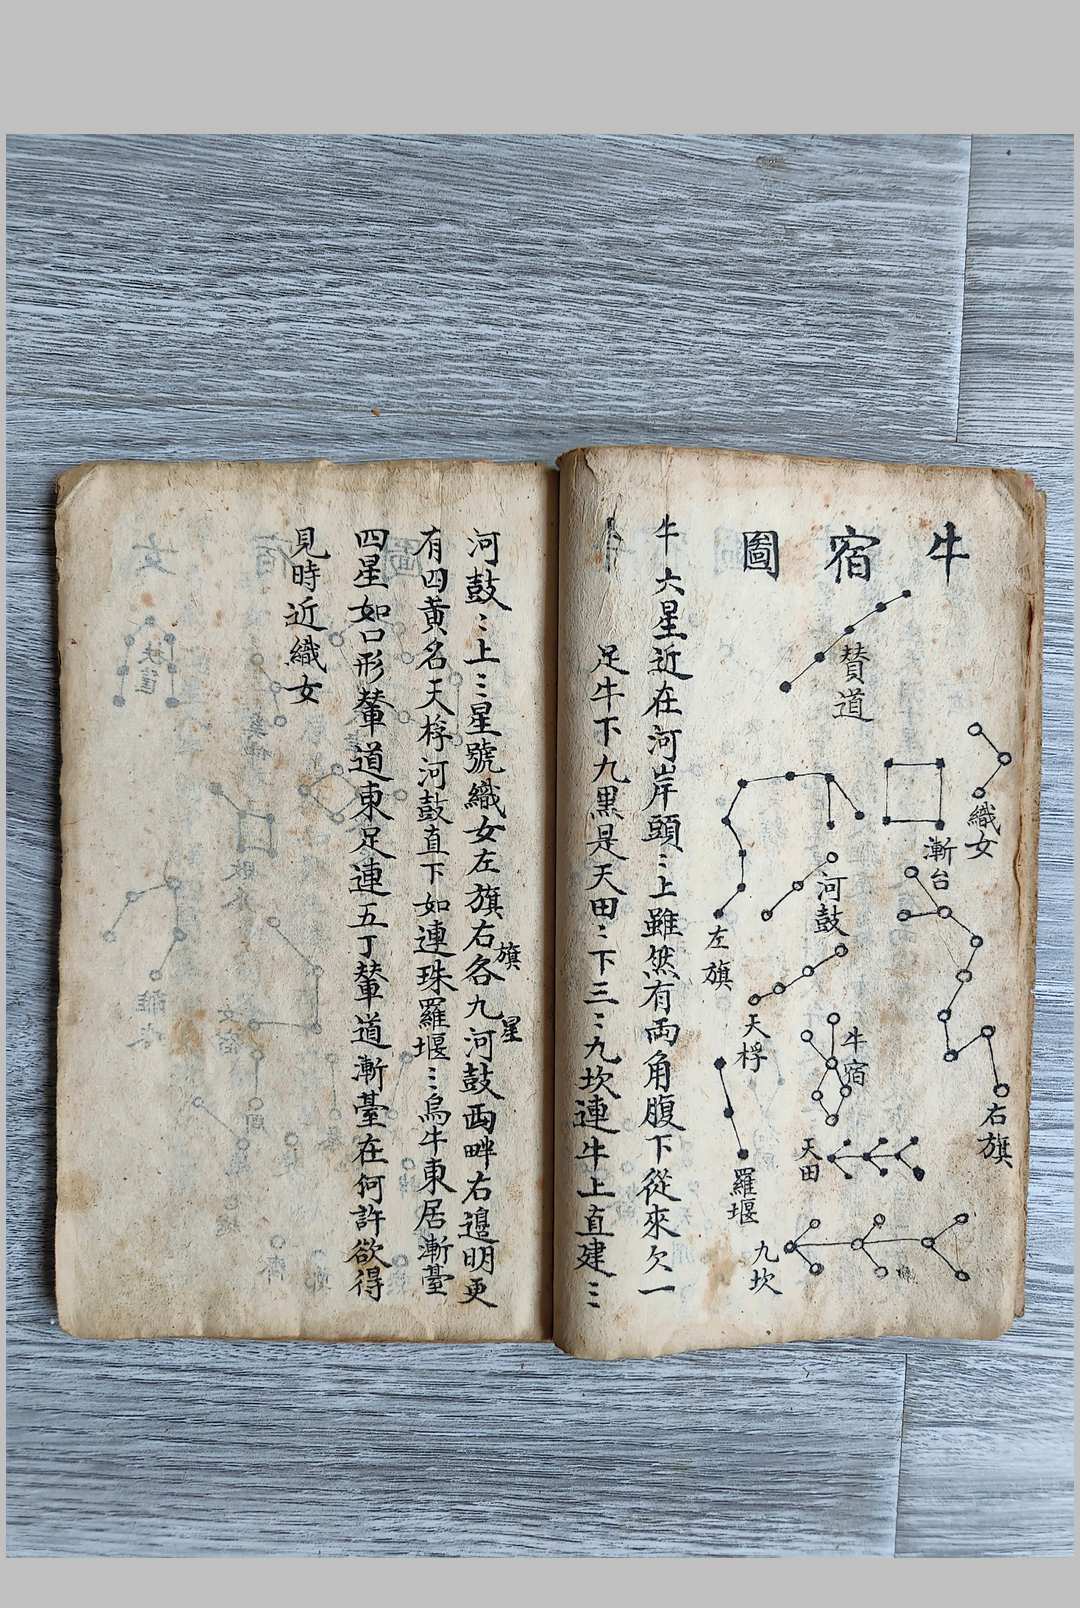 牛宿圖
賛道
織女
漸台
河鼓
左旗
右旗
天桴
牛宿
天田
羅堰
九坎
牛六星近在河岸頭〻上雖然有兩角腹下從來欠一
足牛下九黒是天田〻下三〻九坎連牛上直建三
河鼓〻上三星號織女左旗右旗各九星河鼓兩畔右邊明更
有四黃名天桴河鼓直下如連珠羅堰三烏牛東居漸臺
四星如口形輦道東足連五丁輦道漸臺在何許欲得
見時近織女